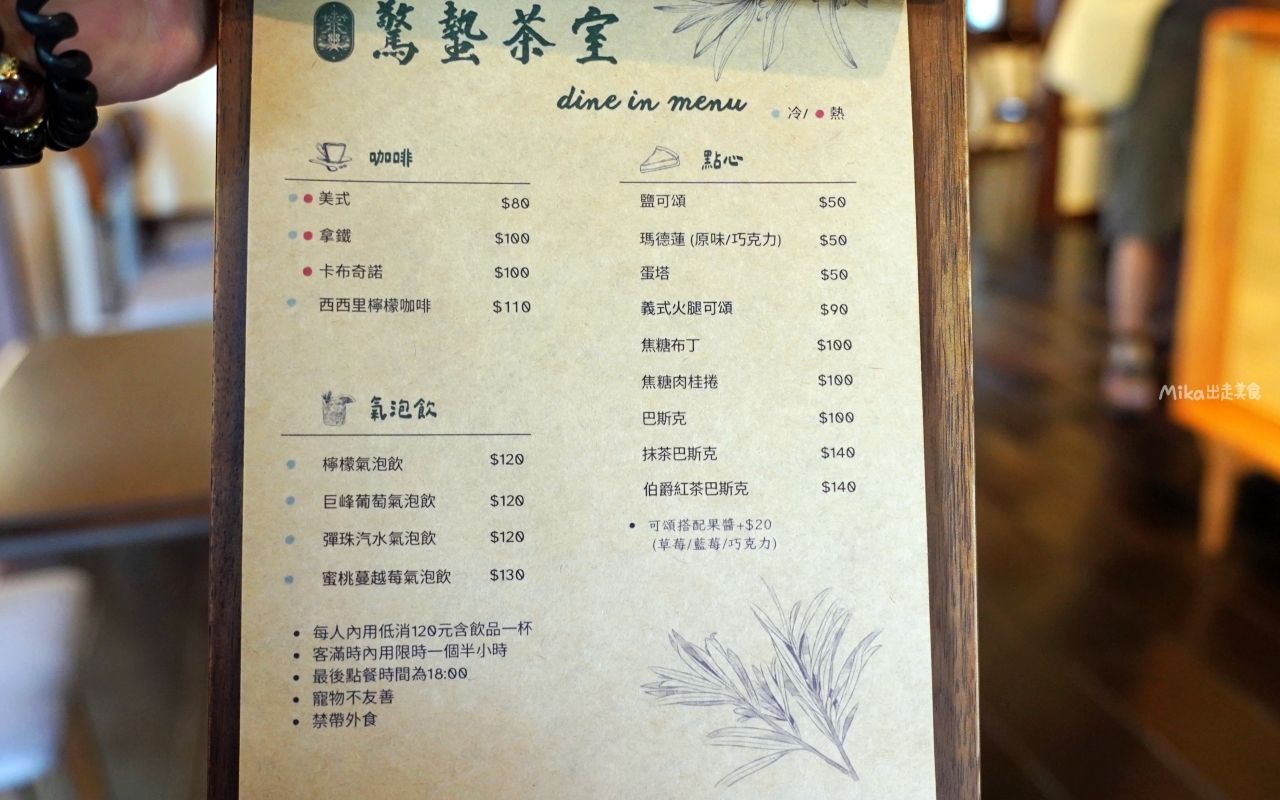 驚蟄茶室
dine in menu
冷/ 熱
咖啡
美式 $80
拿鐵 $100
卡布奇諾 $100
西西里檸檬咖啡 $110
氣泡飲
檸檬氣泡飲 $120
巨峰葡萄氣泡飲 $120
彈珠汽水氣泡飲 $120
蜜桃蔓越莓氣泡飲 $130
• 每人內用低消120元含飲品一杯
• 客滿時內用限時一個半小時
• 最後點餐時間為18:00
• 寵物不友善
• 禁帶外食
點心
鹽可頌 $50
瑪德蓮 (原味/巧克力) $50
蛋塔 $50
義式火腿可頌 $90
焦糖布丁 $100
焦糖肉桂捲 $100
巴斯克 $100
抹茶巴斯克 $140
伯爵紅茶巴斯克 $140
• 可頌搭配果醬+$20
(草莓/藍莓/巧克力)
Mika出走美食